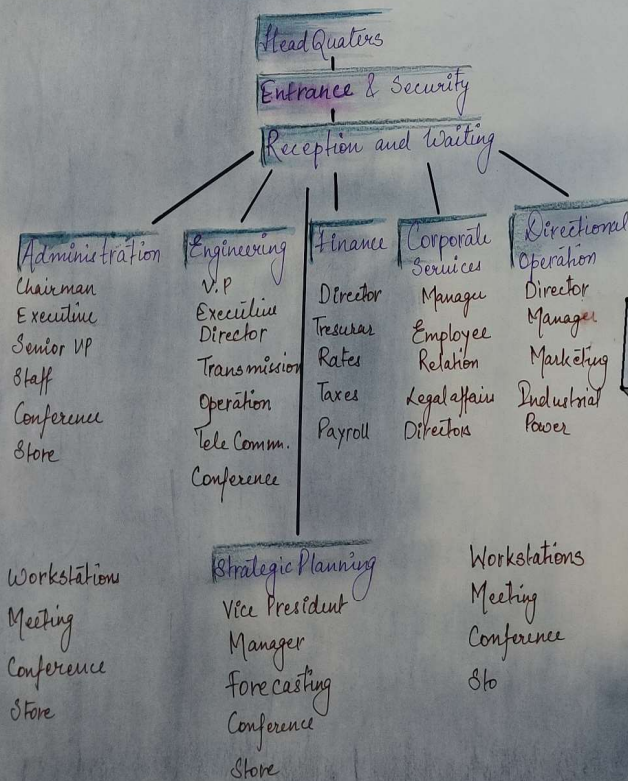 Head Quaters
Entrance & Security
Reception and Waiting
Administration
Chairman
Executive
Senior VP
Staff
Conference
Store
Engineering
V.P
Executive
Director
Transmission
Operation
Tele Comm.
Conference
Finance
Director
Tresurar
Rates
Taxes
Payroll
Corporate
Services
Manager
Employee
Relation
Legal affairs
Directors
Directional
Operation
Director
Manager
Marketing
Industrial
Power
Workstations
Meeting
Conference
Store
Strategic Planning
Vice President
Manager
Forecasting
Conference
Store
Workstations
Meeting
Conference
Sto